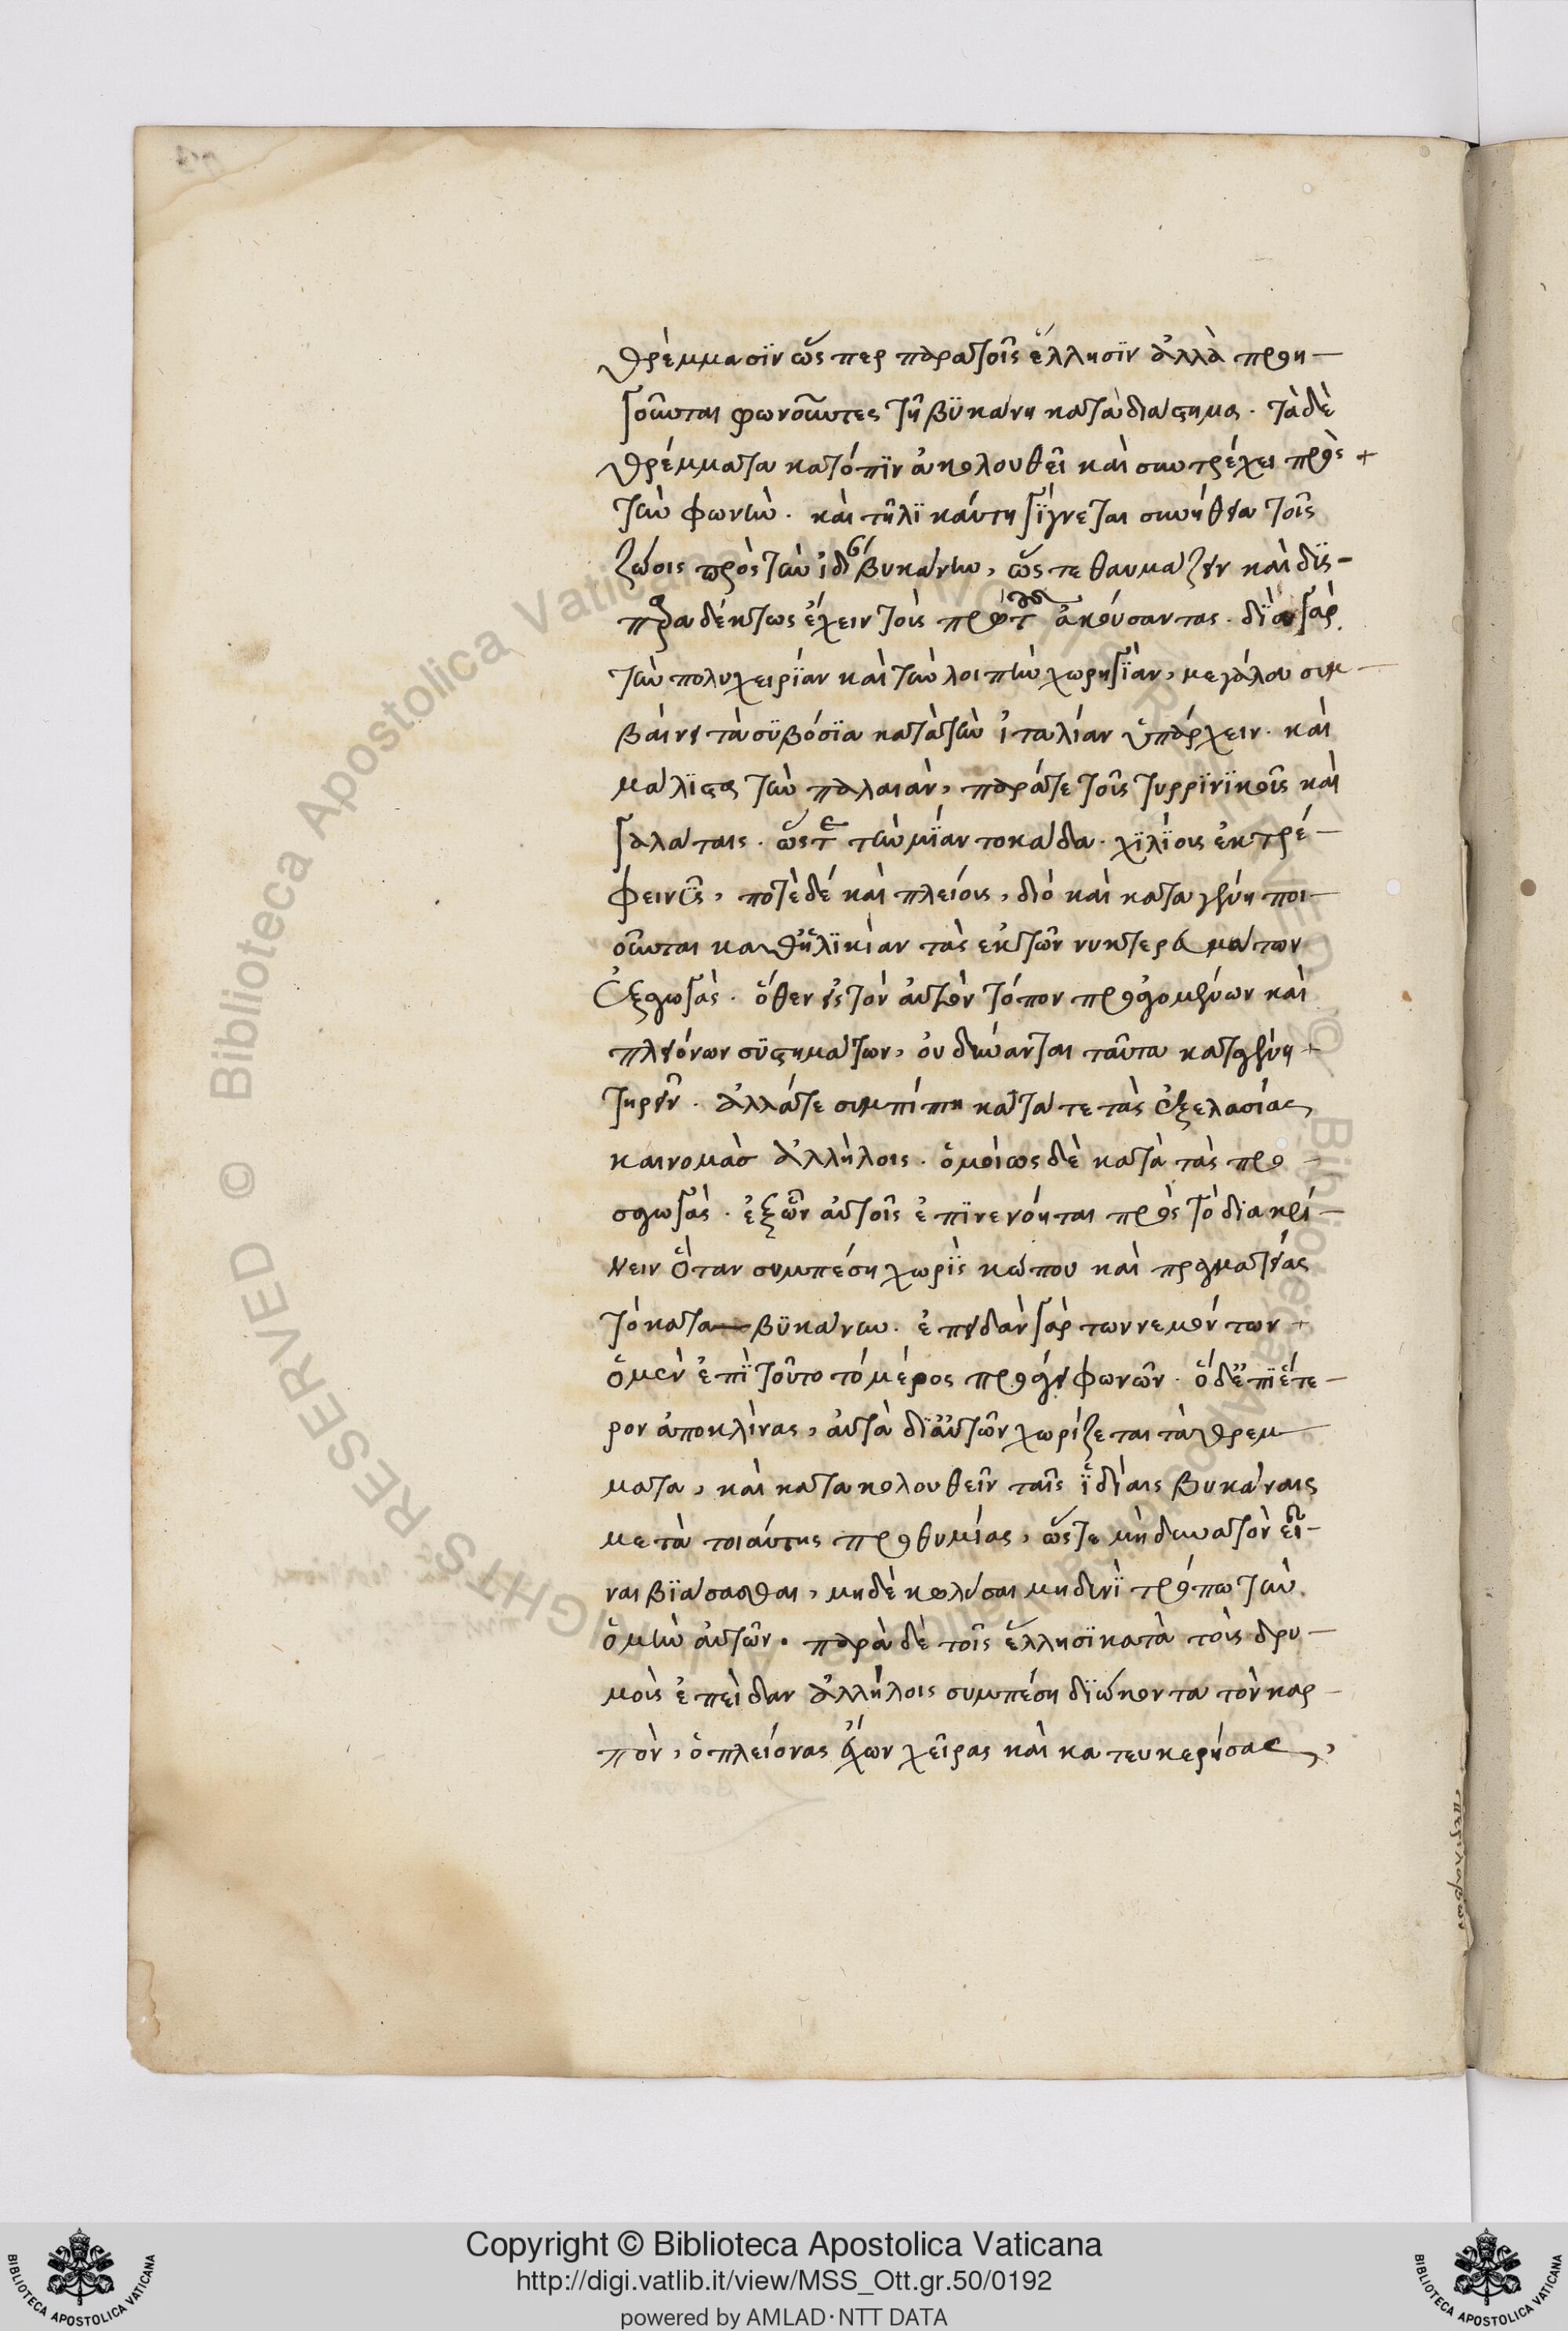 θρέμμασϊν ὥς περ παρατοῖς ἕλλησϊν ἀλλὰ προη
γοῦνται φωνοῦντες τῇ βϋκάνη κατὰ διάστημα. τὰ δὲ
θρέμματα κατόπϊν ἀκολουθεῖ καὶ συντρέχει πρὸς
τὴν φωνὴν. καὶ τηλϊκάυτη γϊγνεται συνήθεια τοῖς
ζώοις πρὸς τὴν ἰδίαν βυκάνην, ὥς τε θαυμάζειν καὶ δϋς
παραδέκτως ἔχειν τοὺς πρῶτον ἀκούσαντας. δϊὰ γὰρ
τὴν πολυχειρϊαν καὶ τὴν λοιπὴν χωρηγϊαν, μεγάλου συμ
βαίνει τὰ σϋβόσϊα κατὰ τὴν ἰταλίαν ὑπάρχειν. καὶ
μάλϊστα τὴν παλαιὰν, παράτε τοῖς τυρρϊνϊκοῖς καὶ
γαλάταις. ὥστε τὴν μϊαν τοκάδα. χϊλϊους ἐκτρέ
φειν ὗς, ποτὲ δέ καὶ πλείους, διὸ καὶ κατὰ γένη ποι
οῦνται καθηλϊκὶαν τὰς ἐκ τῶν νυκτερευμάτων
ἐξαγωγὰς. ὅθεν εἰς τὸν ἀυτὸν τόπον προαγομένων καὶ
πλειόνων συστημάτων, ὀυ δύνανται ταῦτα κατὰ γένη
τηρεῖν. ἀλλάτε συμπίπτη κατά τε τὰς ἐξελασίας
καινομὰσ ἀλλήλοις. ὁμοίως δὲ κατὰ τὰς προ
σαγωγὰς. ἐξ ὧν ἀυτοῖς ἐπϊνενόηται πρὸς τὸ δϊακρί
νειν ὅταν συμπέση χωρὶς κώπου καὶ πραγματείας
τὸ κατα βϋκάνην. ἐπειδὰν γὰρ των νεμόντων
ὁ μὲν ἐπϊ τοῦτο τὸ μέρος προάγει φωνῶν. ὁ δ' ἐπϊ ἕτε
ρον ἀποκλίνας, ἀυτὰ δϊ ἀυτῶν χωρίζεται τὰ θρεμ
ματα, καὶ κατακολουθεῖν ταῖς ϊδίαις βυκάναις
μετὰ τοιάυτης προθυμίας, ὥς τε μὴ δυνατὸν εἶ
ναι βϊάσασθαι, μηδὲ κολύσαι μηδενὶ τρόπω τὴν
ὁρμὴν ἀυτῶν. παρὰ δὲ τοῖς ἕλλησϊ κατὰ τοὺς δρυ
μοὺς ἐπεὶδαν ἀλλήλοις συμπέση δϊώκοντα τὸν καρ
πὸν, ὁ πλείονας ἔχων χεῖρας καὶ κατευκερήσας,
Copyright © Biblioteca Apostolica Vaticana
http://digi.vatlib.it/view/MSS_Ott.gr.50/0192
powered by AMLAD·NTT DATA